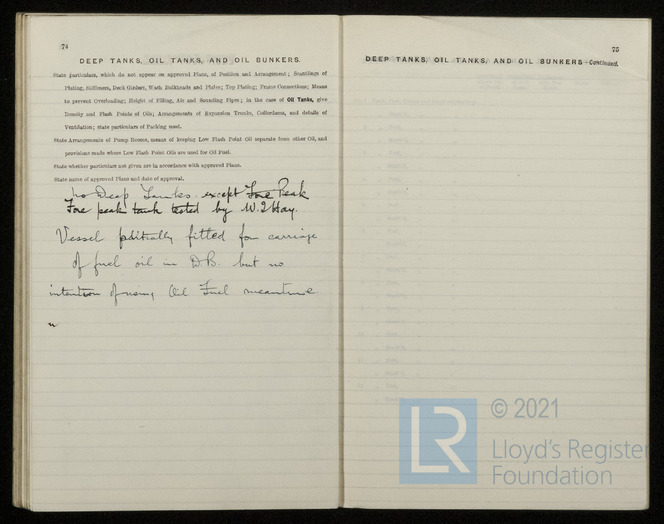 74
DEEP TANKS, OIL TANKS, AND OIL BUNKERS.
State particulars, which do not appear on approved Plans, of Position and Arrangement; Scantlings of
Plating, Stiffeners, Deck Girders, Wash Bulkheads and Plates; Top Plating; Frame Connections; Means
to prevent Overloading; Height of Filling, Air and Sounding Pipes; in the case of Oil Tanks, give
Density and Flash Points of Oils; Arrangements of Expansion Trunks, Cofferdams, and details of
Ventilation; state particulars of Packing used.
State Arrangements of Pump Rooms, means of keeping Low Flash Point Oil separate from other Oil, and
provisions made where Low Flash Point Oils are used for Oil Fuel.
State whether particulars not given are in accordance with approved Plans.
State name of approved Plans and date of approval.
No Deep Tanks except Fore Peak
Fore peak tank tested by W. Hay.
Vessel partially fitted for carriage
of fuel oil in D.B. but no
intention of using Oil Fuel meantime
75
DEEP TANKS, OIL TANKS, AND OIL BUNKERS—Continued.
LR
© 2021
Lloyd's Register
Foundation